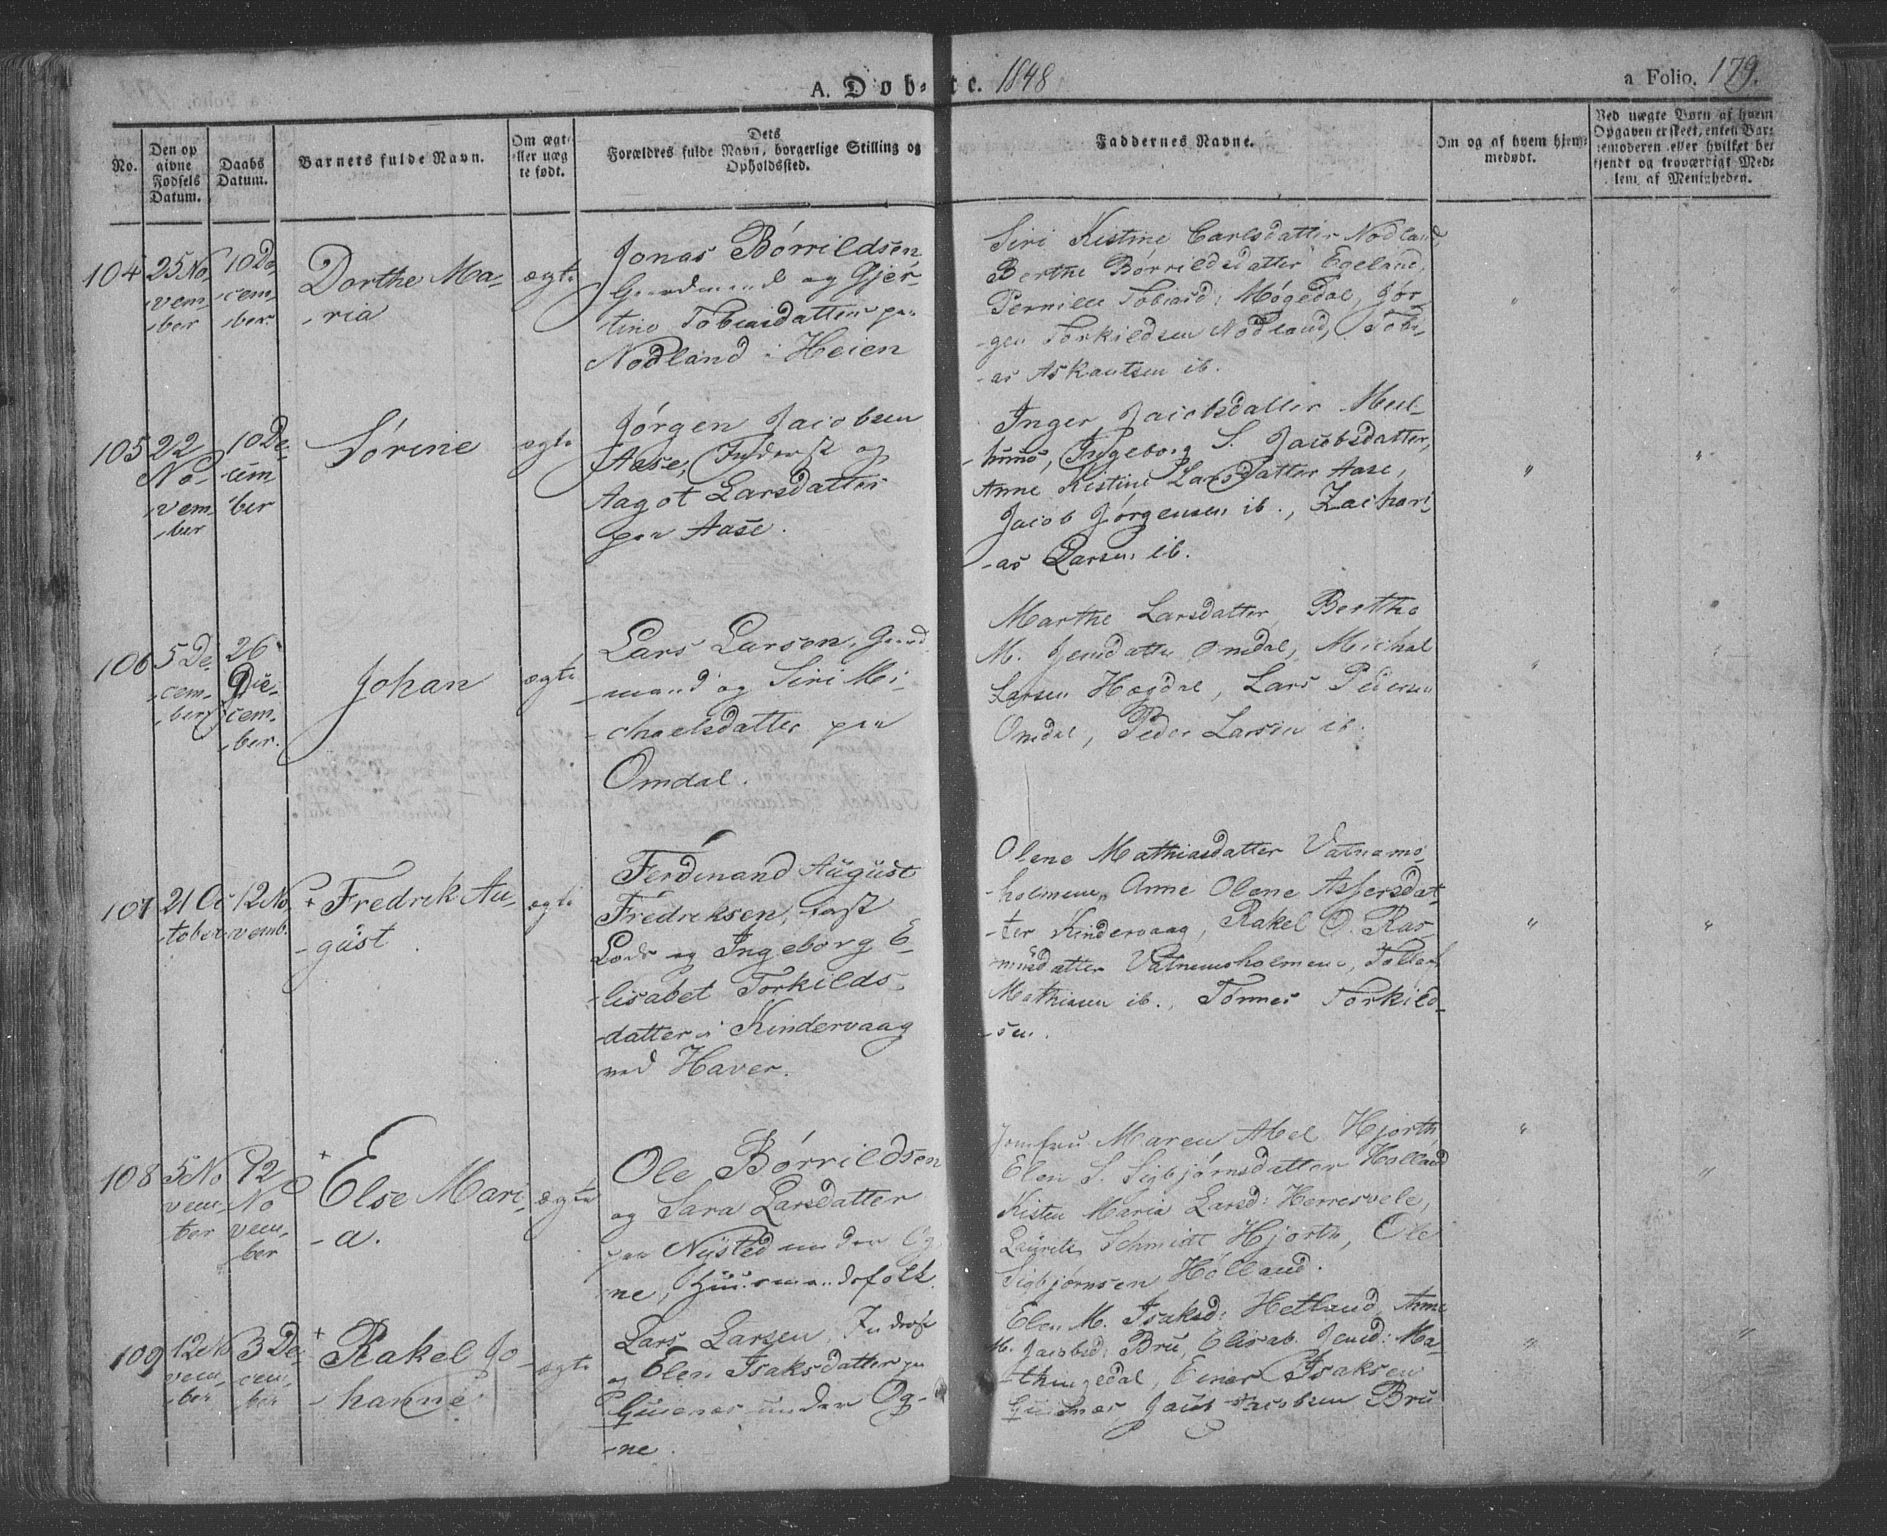 A. Døbte. 1848
a Folio. 179.
No.
Den op
givne
Fødsels
Datum.
Daabs
Datum.
Barnets fulde Navn.
Om ægte
eller uæg
te født.
Dets
Forældres fulde Navn, borgerlige Stilling og
Opholdssted.
Faddernes Navne.
Om og af hvem hjem-
medøbt.
Ved uægte Børn af hvem
Opgaven er skeet, enten Bar-
nemoderen eller hvilket be-
kjendt og troværdigt Med-
lem af Menigheden.
104
25 No-
vem-
ber
10 De
cem-
ber.
Dorthe Ma-
-ria
ægte
Jonas Børrildsen
Gaardmand og Gjer-
tine Tobiasdatter paa
Nodland i Heien
Siri Kistine Carlsdatter Nodland,
Berthe Børrildsdatter Egeland,
Pernille Tobiasd: Møgedal, Jør-
-gen Torkildsen Nodland, Tobi-
-as Askautsen ib.
"
"
105
22
No-
vem-
ber
10 De-
cem
ber
Sørine
ægte
Jørgen Jacobsen
Aase, Inderst og
Aagot Larsdatter
paa Aase.
Inger Jacobsdatter
-huus, Ingeborg S. Jacobsdatter,
Anne Kistine Larsdatter Aase,
Jacob Jørgensen ib., Zachari-
-as Larsen ib.
"
"
106
5 De-
cem-
ber
26
De-
cem-
ber.
Johan
ægte
Lars Larsen, Gaard
mand og Siri Mi-
-chaelsdatter paa
Omdal.
Marthe Larsdatter, Berthe
M. Jensdatter Omdal, Michal
Larsen Hægdal, Lars Pedersen
Omdal, Peder Larsen ib.
"
"
107
21 Oc
tober
12 No-
vemb.
+ Fredrik Au-
-gust.
ægte
Ferdinand August
Fredriksen, fast
Lods og Ingeborg E-
-lisabet Torkilds-
datter i Kindervaag
ved Haver.
Olene Mathiasdatter Vatnems-
-holmene, Anne Olene Assersdat-
-ter Kindervaag, Rakel O. Ras-
-musdatter Vatnemsholmene, Tollak
Mathiasen ib., Tønnes Torkild-
-sen.
"
"
108
5 No
vem-
ber
12
No
vem-
ber
+
Else Mari-
-a.
ægte
Ole Børrildsen
og Sara Larsdatter
paa Nysted under Og-
ne, Huusmandsfolk.
Jomfru Maren Abel Hjorth,
Elen S. Sigbjørnsdatter Holland
Kisten Maria Larsd: Herresvele,
Lauritz Schmidt Hjorth, Ole
Sigbjørnsen Hølland.
"
"
109
12 No
vem-
ber
3 De-
cem-
ber
+ Rakel Jo-
-hanne
ægte
Lars Larsen, Inderst
og Elen Isaksdatter paa
under Og-
-ne.
Elen M. Isaksd: Hetland, Anne
M. Jacobsd: Bru, Elisab. Jensd: Ma-
thingsdal, Einer Isaksen
Jacob Jacobsen Bru
"
"